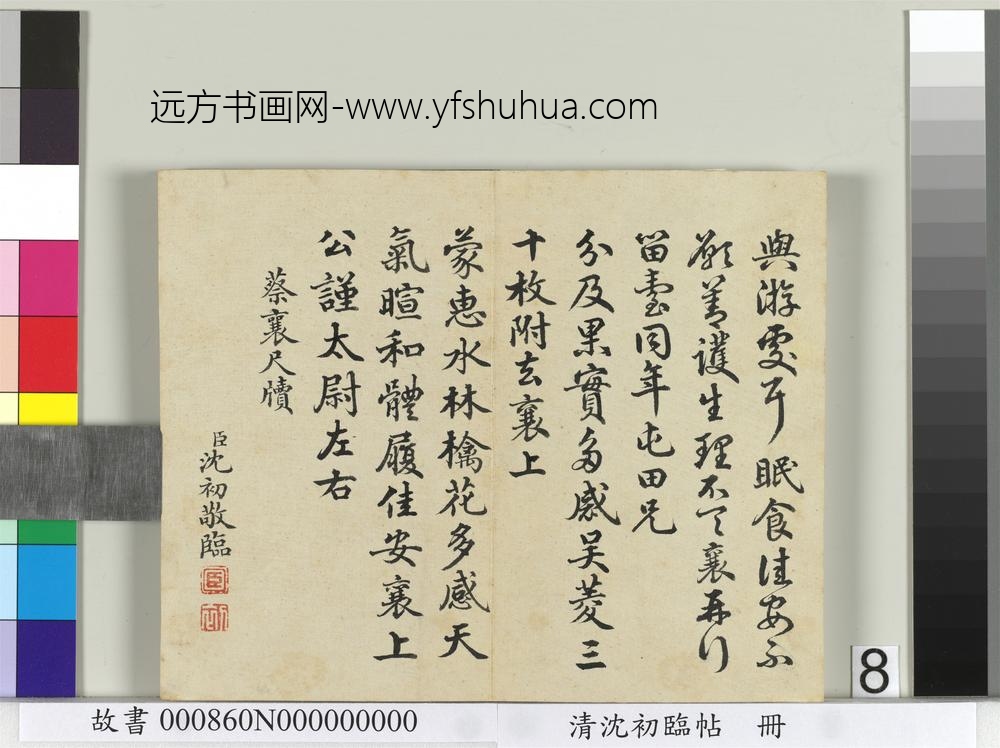 远方书画网-www.yfshuhua.com
與游處耳眠食佳安不
願善護生理不襄再拜
留臺同年屯田兄
分及果實多感吳菱三
十枚附去襄上
蒙惠水林檎花多感天
氣暄和體履佳安襄上
公謹太尉左右
蔡襄尺牘
臣沈初敬臨
臣
初
8
故書 000860N000000000
清沈初臨帖 冊